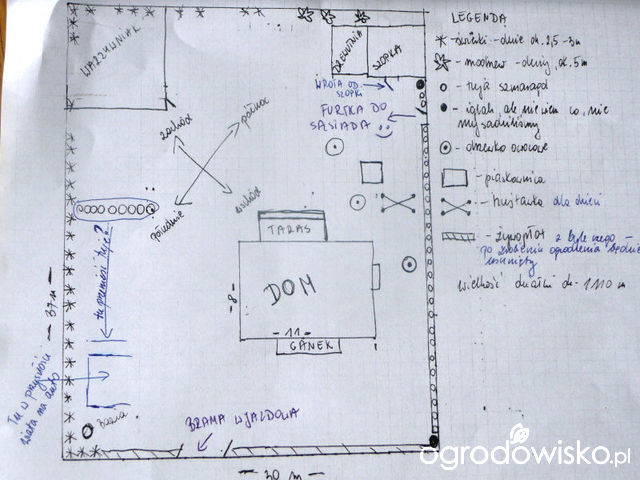 WARZYWNIAK
DREWUTNIA
SZOPKA
WROTA OD
SZOPKI
FURTKA DO
SĄSIADA
zachód
północ
południe
wschód
TARAS
DOM
-8-
-11-
GANEK
tu przenieść tuje?
37m
Tu w przyszłości
wiata na auto
BRAMA WJAZDOWA
30 m
LEGENDA
- świerki - duże ok. 2,5-3m
- modrzew - duży, ok. 5m
- tuja szmaragd
- iglak, ale nie wiem co, nie
my sadziliśmy
- drzewko owocowe
- piaskownica
- huśtawka dla dzieci
- żywopłot z byle czego -
po zrobieniu ogrodzenia będzie
usunięty
wielkość działki ok. 1110 m
ogrodowisko.pl